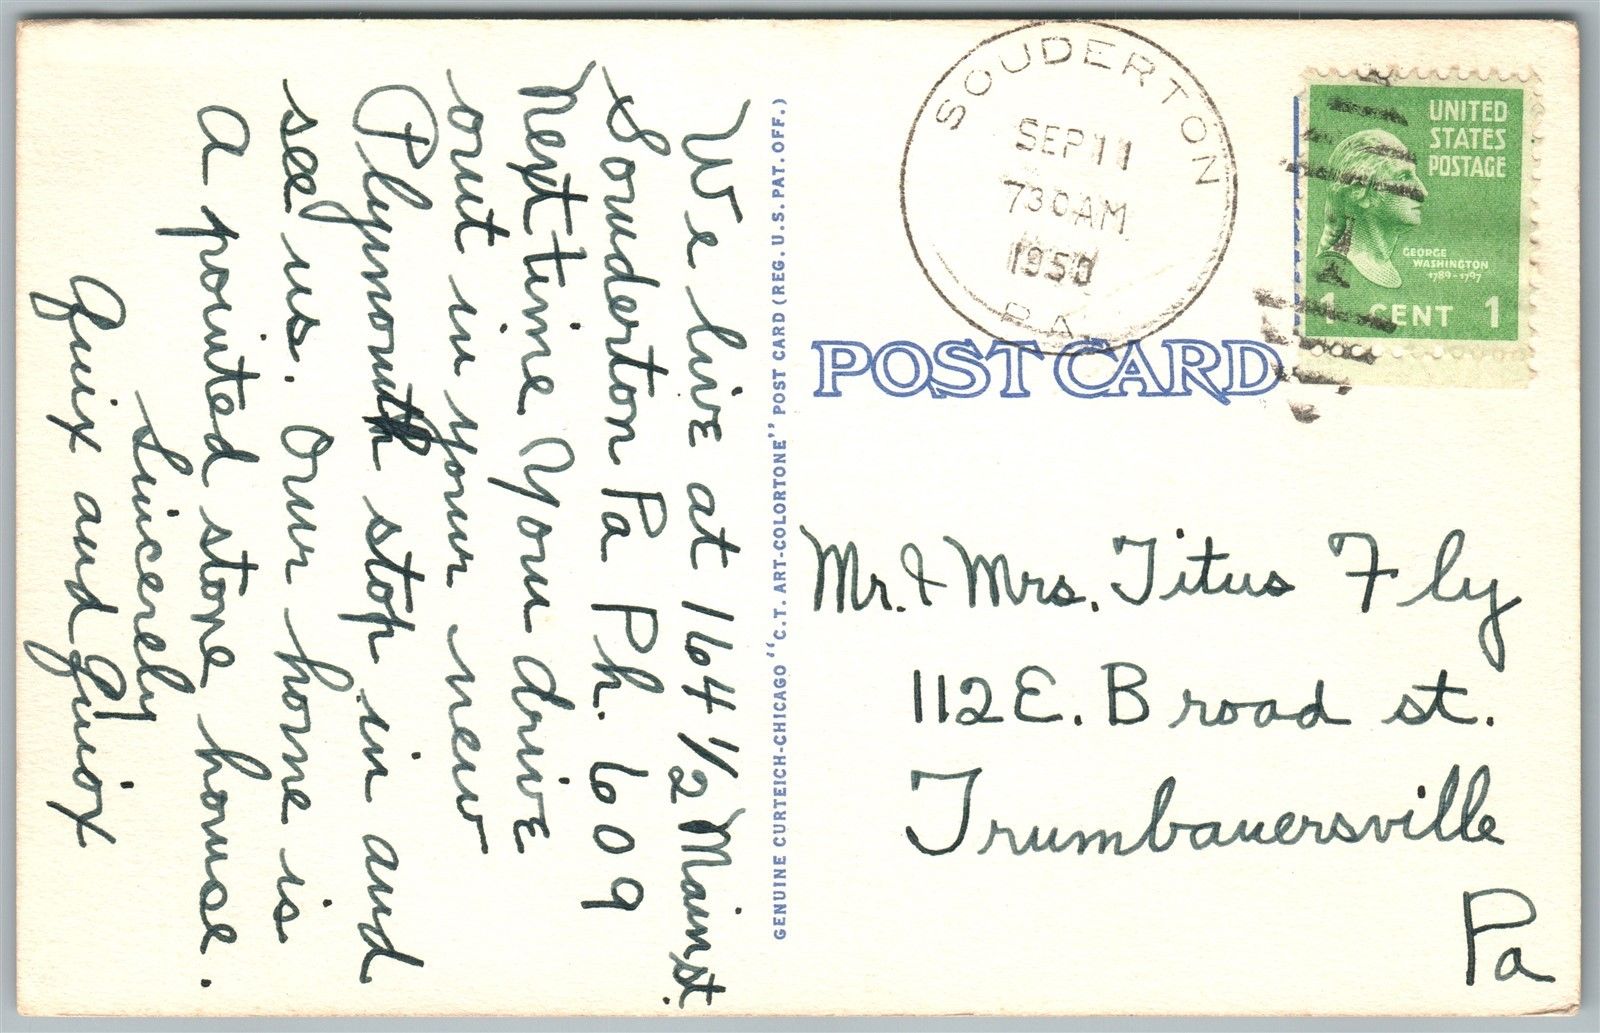 We live at 164 1/2 Main st.
Souderton Pa Ph. 609
Next time You drive
out in your new
Plymouth stop in and
see us. Our home is
a pointed stone house.
Sincerely
and
GENUINE CURTEICH-CHICAGO "C.T. ART-COLORTONE" POST CARD (REG. U.S. PAT. OFF.)
SOUDERTON
SEP 11
730AM
1950
PA.
UNITED
STATES
POSTAGE
GEORGE
WASHINGTON
1789-1797
1 CENT 1
POST CARD
Mr. & Mrs. Titus Fly
112 E. Broad st.
Trumbauersville
Pa